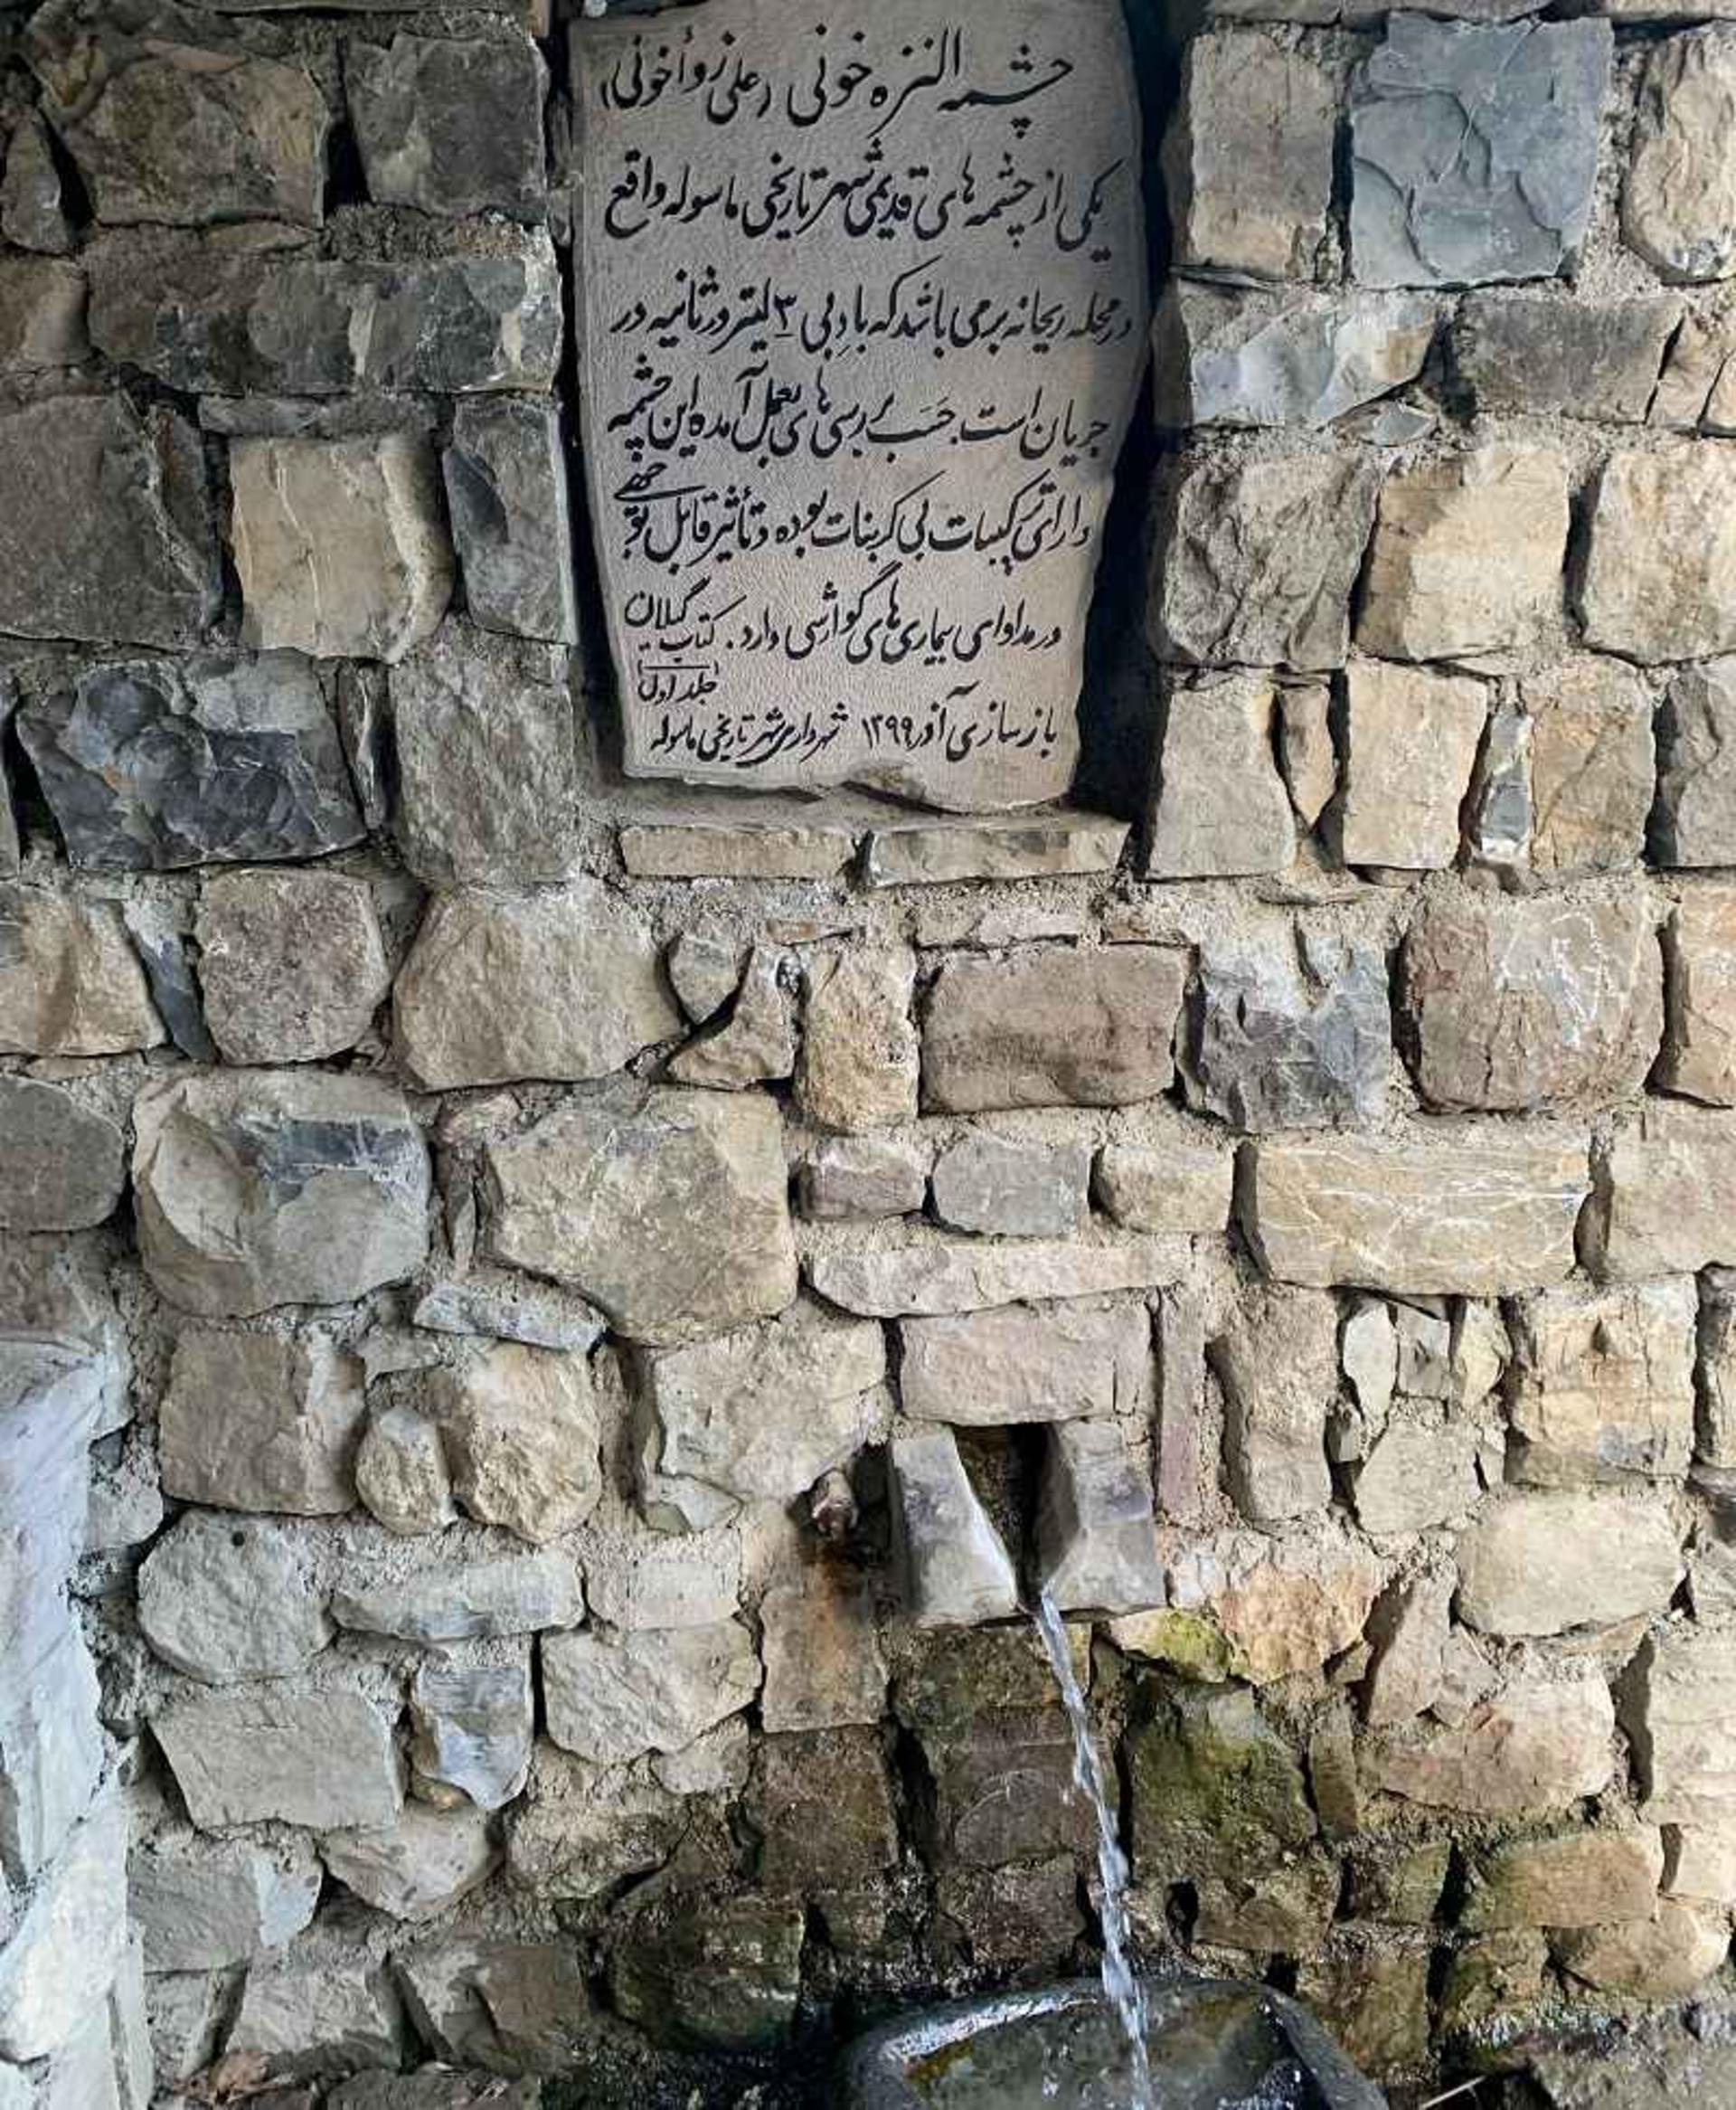 چشمه النزه خونی (علی زوأخونی)
یکی از چشمه های قدیمی شهر تاریخی ماسوله واقع
در محله ریحانه بر می باشد که با دِبی ۳ لیتر در ثانیه در
جریان است. حَسَب بررسی های بعمل آمده این چشمه
دارای ترکیبات بی کربنات بوده و تأثیر قابل توجهی
در مداوای بیماری های گوارشی دارد. کتاب گیلان
(جلد اول)
بازسازی آذر ۱۳۹۹ شهرداری شهر تاریخی ماسوله